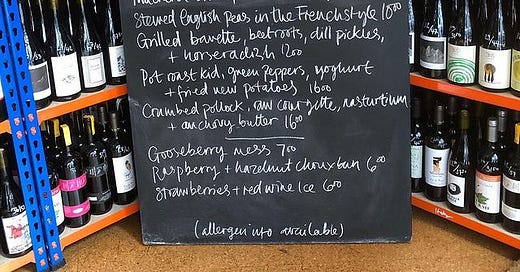 Stewed English Peas in the French style 10.00
Grilled bavette, beetroots, dill pickles,
+ horseradish 12.00
Pot roast kid, green peppers, yoghurt
+ fried new potatoes 16.00
Crumbed pollock, raw courgette, nasturtium
+ anchovy butter 16.00
Gooseberry mess 7.00
Raspberry + hazelnut choux bun 6.00
Strawberries + red wine Ice 6.00
(allergen info available)